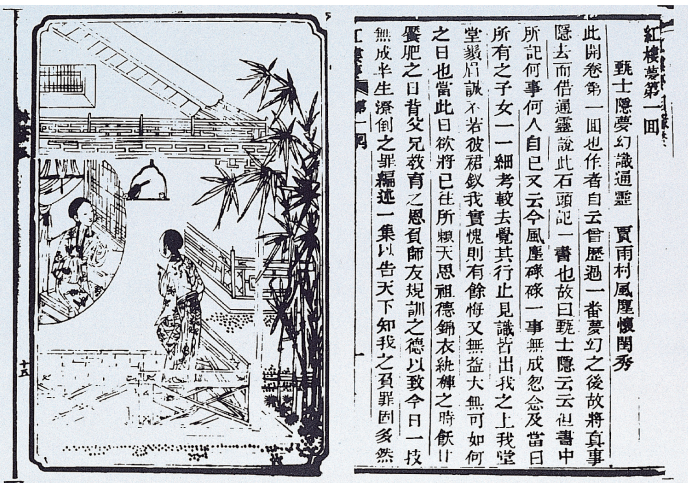 紅樓夢第一回
甄士隱夢幻識通靈　賈雨村風塵懷閨秀
此開卷第一回也作者自云曾歷過一番夢幻之後故將真事
隱去而借通靈說此石頭記一書也故曰甄士隱云云但書中
所記何事何人自己又云今風塵碌碌一事無成忽念及當日
所有之子女一一細考較去覺其行止見識皆出我之上我堂
堂鬚眉誠不若彼裙釵我實愧則有餘悔又無益大無可如何
之日也當此日欲將已往所賴天恩祖德錦衣紈褲之時飫甘
饜肥之日背父兄教育之恩負師友規訓之德以致今日一技
無成半生潦倒之罪編述一集以告天下知我之負罪固多然
紅樓夢　第一回
十五